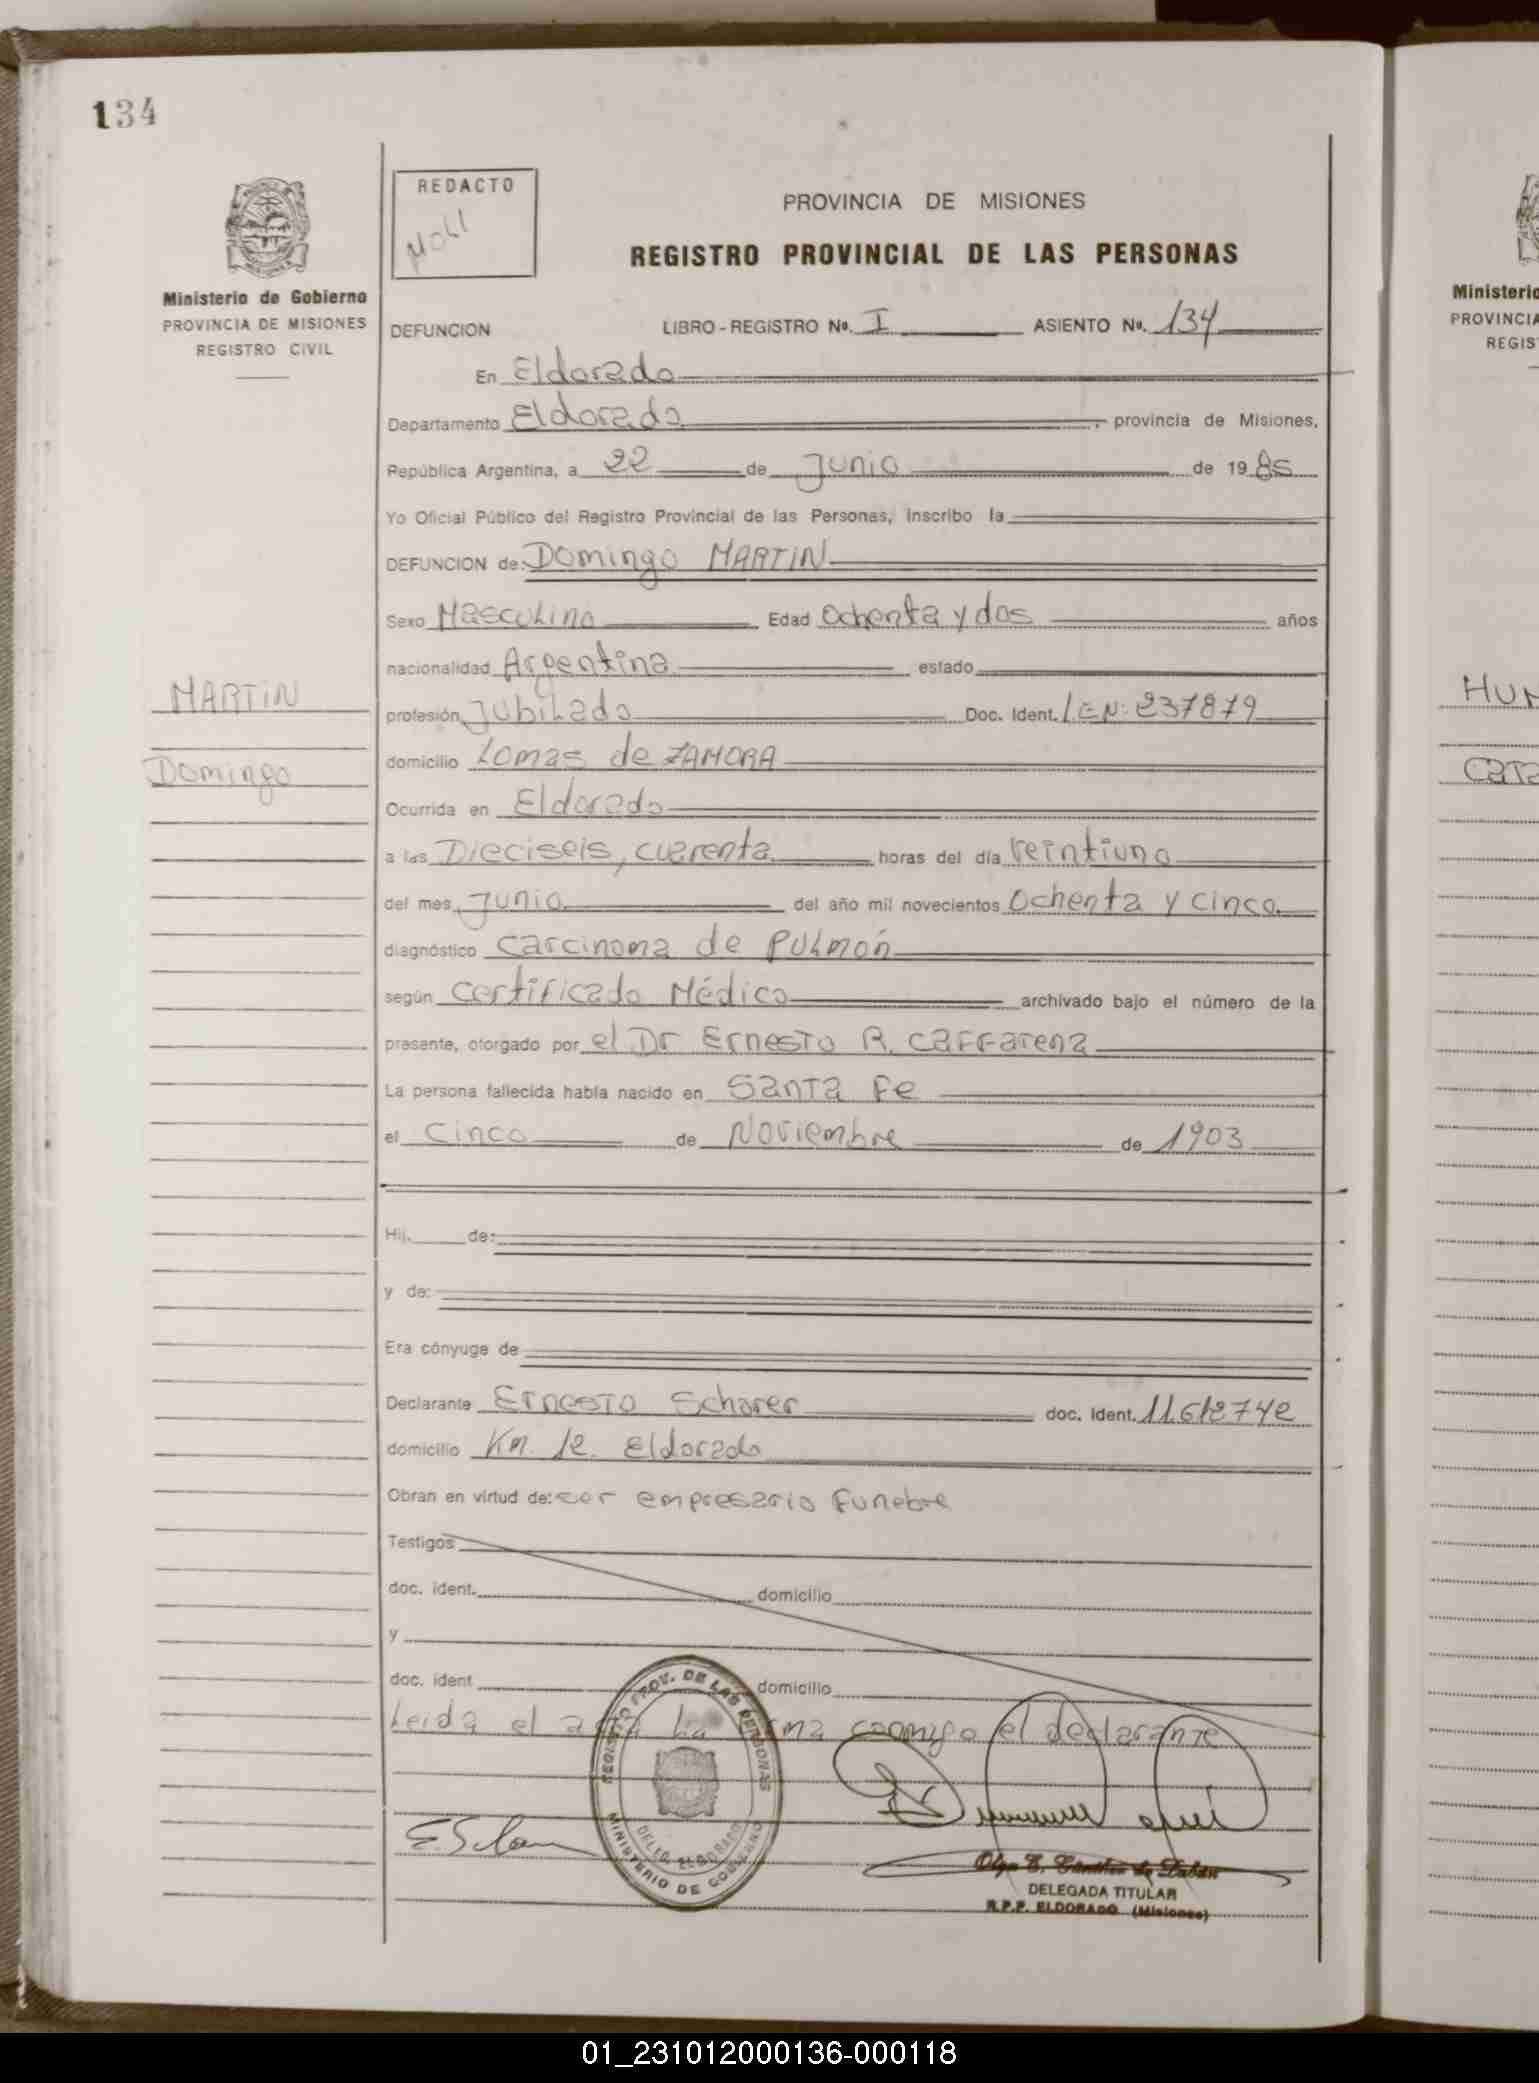 134
REDACTO
Ministerio de Gobierno
PROVINCIA DE MISIONES
REGISTRO CIVIL
PROVINCIA DE MISIONES
REGISTRO PROVINCIAL DE LAS PERSONAS
DEFUNCION LIBRO - REGISTRO No. I ASIENTO No. 134
En Eldorado
Departamento Eldorado, provincia de Misiones,
República Argentina, a 22 de Junio de 1985
Yo Oficial Público del Registro Provincial de las Personas, inscribo la
DEFUNCION de: Domingo MARTIN
Sexo Masculino Edad Ochenta y dos años
nacionalidad Argentina estado
MARTIN
profesión Jubilado Doc. Ident. LEN: 237879
domicilio Lomas de ZAMORA
Domingo
Ocurrida en Eldorado
a las Dieciseis, cuarenta horas del día veintiuno
del mes Junio del año mil novecientos Ochenta y cinco
diagnóstico carcinoma de PULMón
según certificado Médico archivado bajo el número de la
presente, otorgado por el Dr Ernesto R. Caffarena
La persona fallecida había nacido en Santa Fe
el Cinco de Noviembre de 1903
Hij. de:
y de:
Era cónyuge de
Declarante Ernesto Scharer doc. Ident. 11.612742
domicilio Km. 12. Eldorado
Obran en virtud de: ser empresario Funebre
Testigos
doc. ident. domicilio
y
doc. ident domicilio
Leida el acta la firma conmigo el declarante
REGISTRO PROV. DE LAS PERSONAS
DELEG. ELDORADO
MINISTERIO DE GOBIERNO
DELEGADA TITULAR
R.P.P. ELDORADO (Misiones)
Ministerio
PROVINCIA
REGIS
HUM
01_231012000136-000118